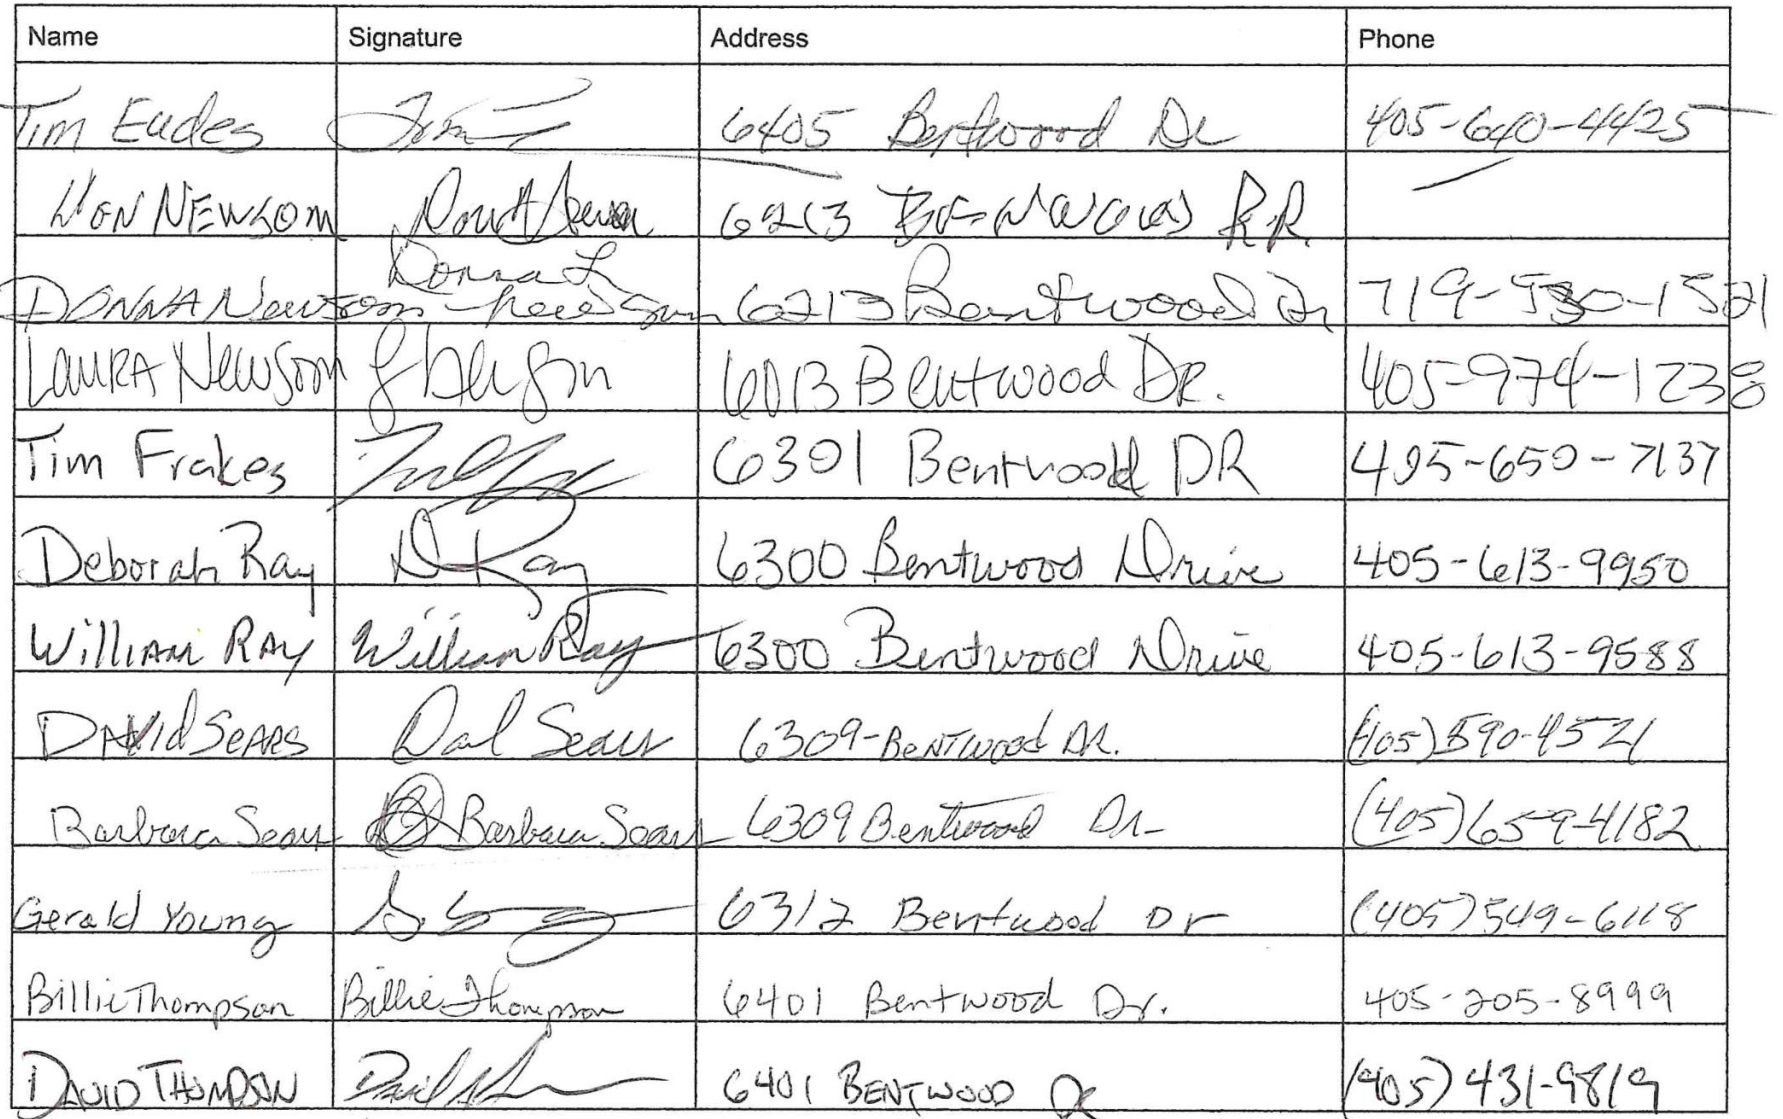 Name Signature Address Phone
Tim Eudes 6405 Bentwood Dr 405-640-4425
DON NEWSOM 6213 BENTWOOD DR.
DONNA Newsom Donna L Newsom 6213 Bentwood Dr 719-530-1521
LAURA Newsom 6013 Bentwood DR. 405-974-1238
Tim Frakes 6301 Bentwood DR 405-650-7137
Deborah Ray D Ray 6300 Bentwood Drive 405-613-9950
William RAY William Ray 6300 Bentwood Drive 405-613-9588
DAVID SEARS Sears 6309-BENTWOOD DR. (405) 590-4521
Barbara Sears Barbara Sears 6309 Bentwood Dr- (405) 659-4182
Gerald Young 6312 Bentwood Dr (405) 549-6118
Billie Thompson Billie Thompson 6401 Bentwood Dr. 405-205-8999
DAVID THOMPSON 6401 BENTWOOD Dr (405) 431-9819